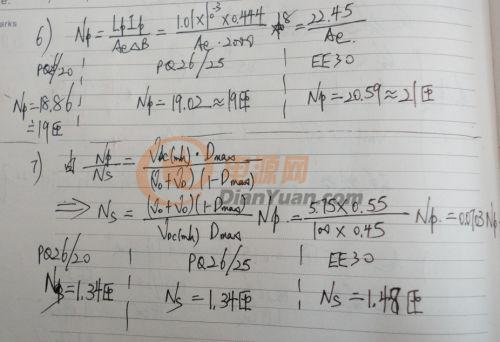 arks
6) Np = LpIp / AeΔB = 1.01×10⁻³×0.444 / Ae·2000 ×10⁸ = 22.45 / Ae.
PQ26/20 PQ26/25 EE30
Np=18.86 Np=19.02≈19匝 Np=20.59≈21匝
≐19匝
电源网
DianYuan.com
7) Np / Ns = VDC(min)·Dmax / (Vo+VD)(1-Dmax)
⇒ Ns = (Vo+VD)(1-Dmax) / VDC(min) Dmax Np = 5.75×0.55 / 100×0.45 Np. = 0.0703Np.
PQ26/20 PQ26/25 EE30
Ns=1.34匝 Ns=1.34匝 Ns=1.48匝